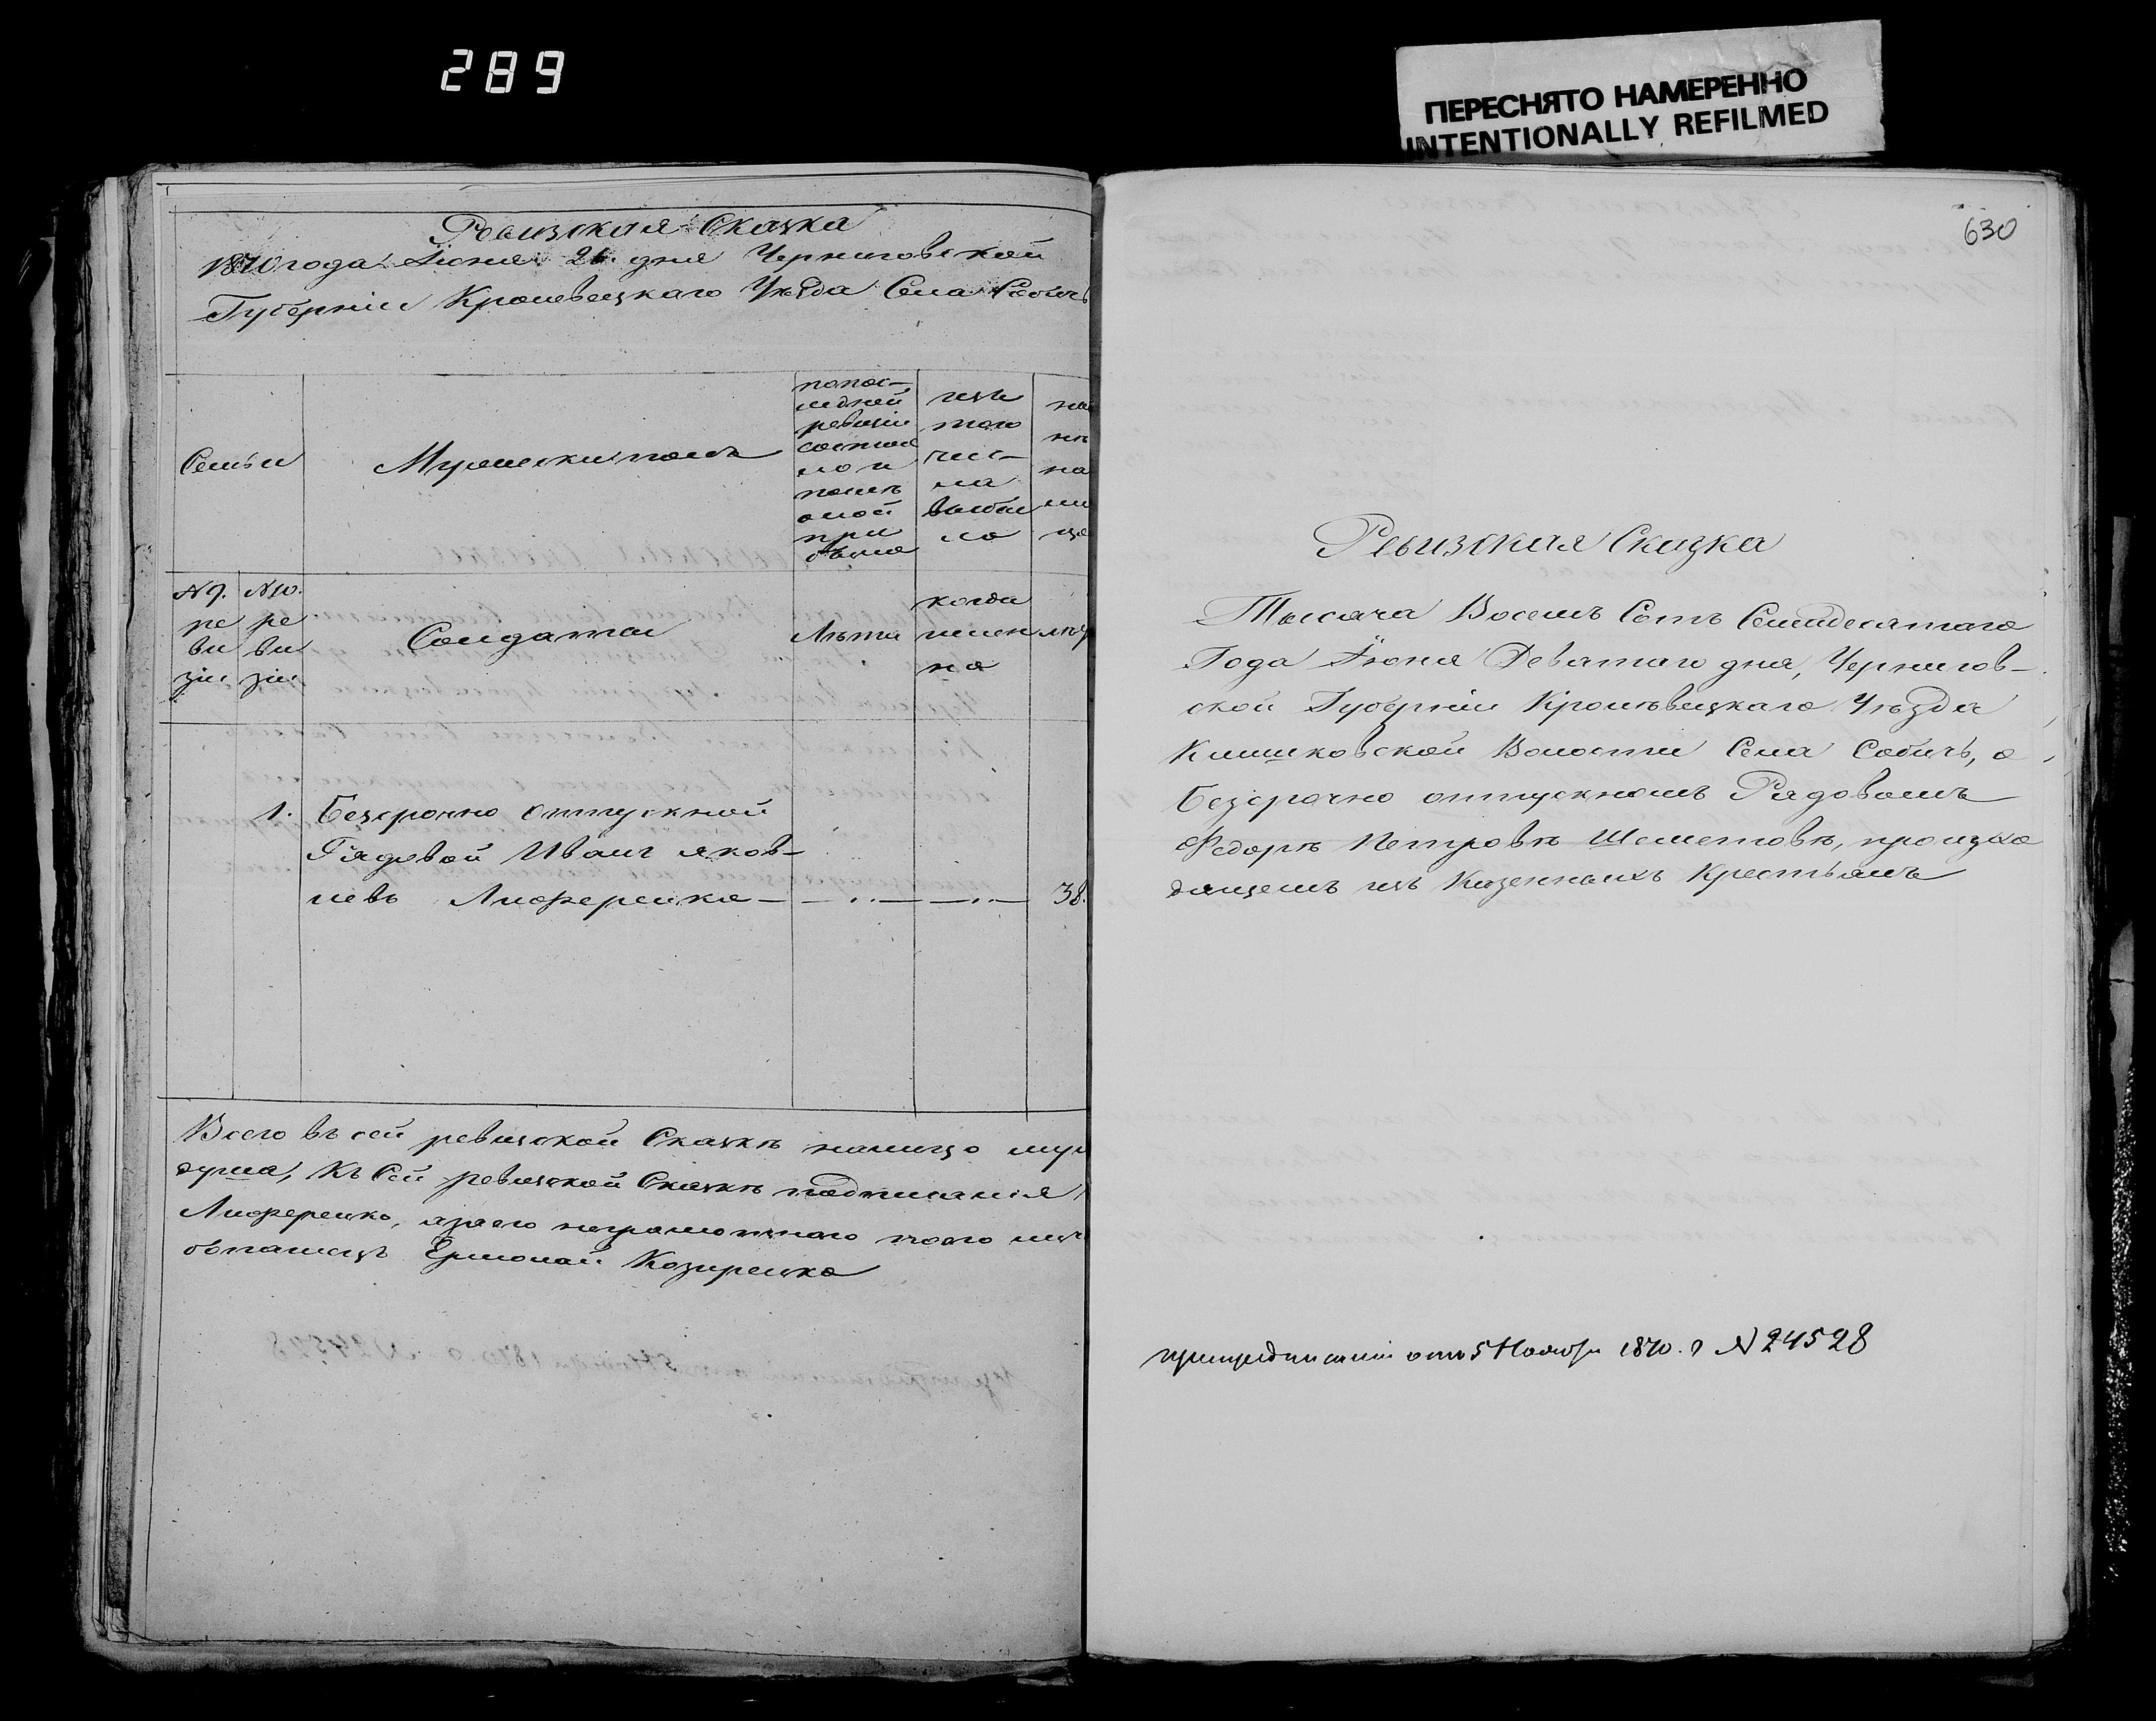 289
ПЕРЕСНЯТО НАМЕРЕННО
INTENTIONALLY REFILMED
Ревизская Сказка
1870 года Іюня 21 дня Черниговской
Губерніи Кролевецкаго Уѣзда Села Собичъ
Семьи
Мужескій полъ
попос-
лѣдней
ревизіи
состоя
ло и
послѣ
оной
при
было
изъ
того
чис-
ла
выбы
ло
на
на
ли
це
№ 9. № 10.
ре ре
ви ви
зіи зіи
Солдаты
Лѣта
когда
имен
но
лѣт
1. Безсрочно отпускной
Рядовой Иванъ Яков-
левъ Лиференко — — . . — — . . — 38.
Всего въ сей ревизской Сказкѣ налицо муж
душа, Къ Сей ревизской Сказкѣ подписался
Лиференко, а за его неграмотнаго
Ермолай Козиренко
630
Ревизская Сказка
Тысяча Восемъ Сотъ Семидесятаго
Года Іюня Девятаго дня, Чернигов-
ской Губерніи Кролѣвецкаго Уѣзда
Клишковской Волости Села Собичъ, о
безсрочно отпускномъ Рядовомъ
Федорѣ Петровѣ Шеметовѣ, произхо
дящемъ изъ Казенныхъ Крестьянъ
при предписаніи отъ 5 Ноября 1870 г № 24528